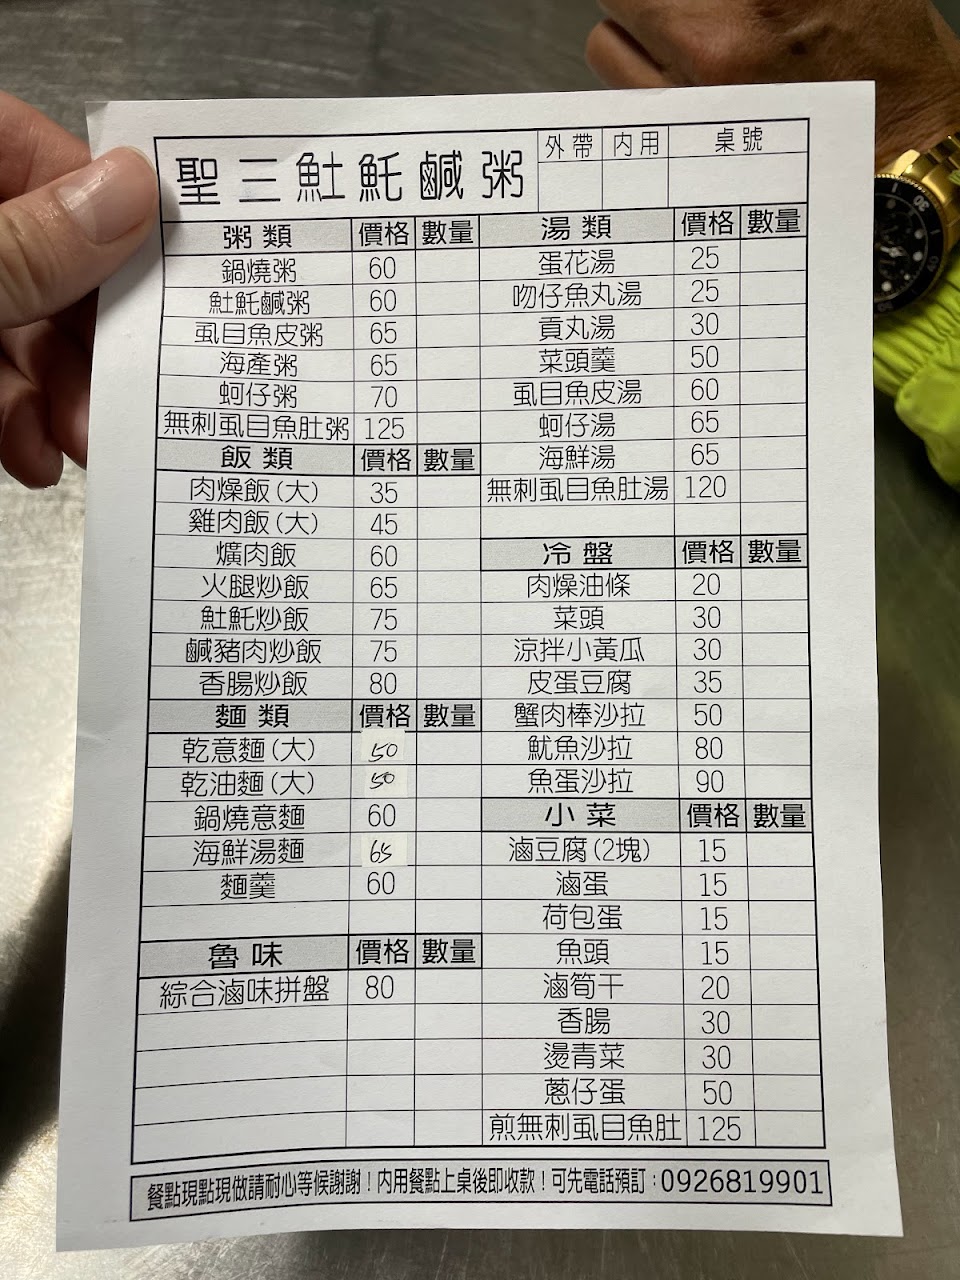 聖三魠魠鹹粥 外帶 內用 桌號
粥類 價格 數量
鍋燒粥 60
魠魠鹹粥 60
虱目魚皮粥 65
海產粥 65
蚵仔粥 70
無刺虱目魚肚粥 125
飯類 價格 數量
肉燥飯(大) 35
雞肉飯(大) 45
爌肉飯 60
火腿炒飯 65
魠魠炒飯 75
鹹豬肉炒飯 75
香腸炒飯 80
麵類 價格 數量
乾意麵(大) 50
乾油麵(大) 50
鍋燒意麵 60
海鮮湯麵 65
麵羹 60
魯味 價格 數量
綜合滷味拼盤 80
湯類 價格 數量
蛋花湯 25
吻仔魚丸湯 25
貢丸湯 30
菜頭羹 50
虱目魚皮湯 60
蚵仔湯 65
海鮮湯 65
無刺虱目魚肚湯 120
冷盤 價格 數量
肉燥油條 20
菜頭 30
涼拌小黃瓜 30
皮蛋豆腐 35
蟹肉棒沙拉 50
魷魚沙拉 80
魚蛋沙拉 90
小菜 價格 數量
滷豆腐(2塊) 15
滷蛋 15
荷包蛋 15
魚頭 15
滷筍干 20
香腸 30
燙青菜 30
蔥仔蛋 50
煎無刺虱目魚肚 125
餐點現點現做請耐心等候謝謝!內用餐點上桌後即收款!可先電話預訂:0926819901